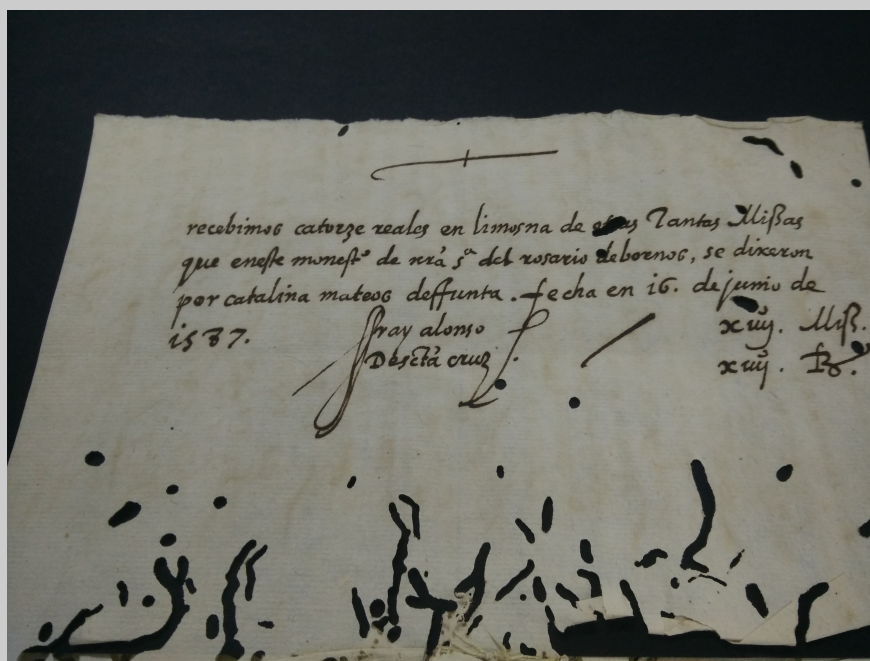 recebimos catorze reales en limosna de otras Tantas Missas
que eneste monestº de nrã sª del rosario debornos, se dixeron
por catalina mateos deffunta. fecha en 16. de junio de
1587. ffray alonso xiiij. Miss.
Desctã cruz xiiij. R.